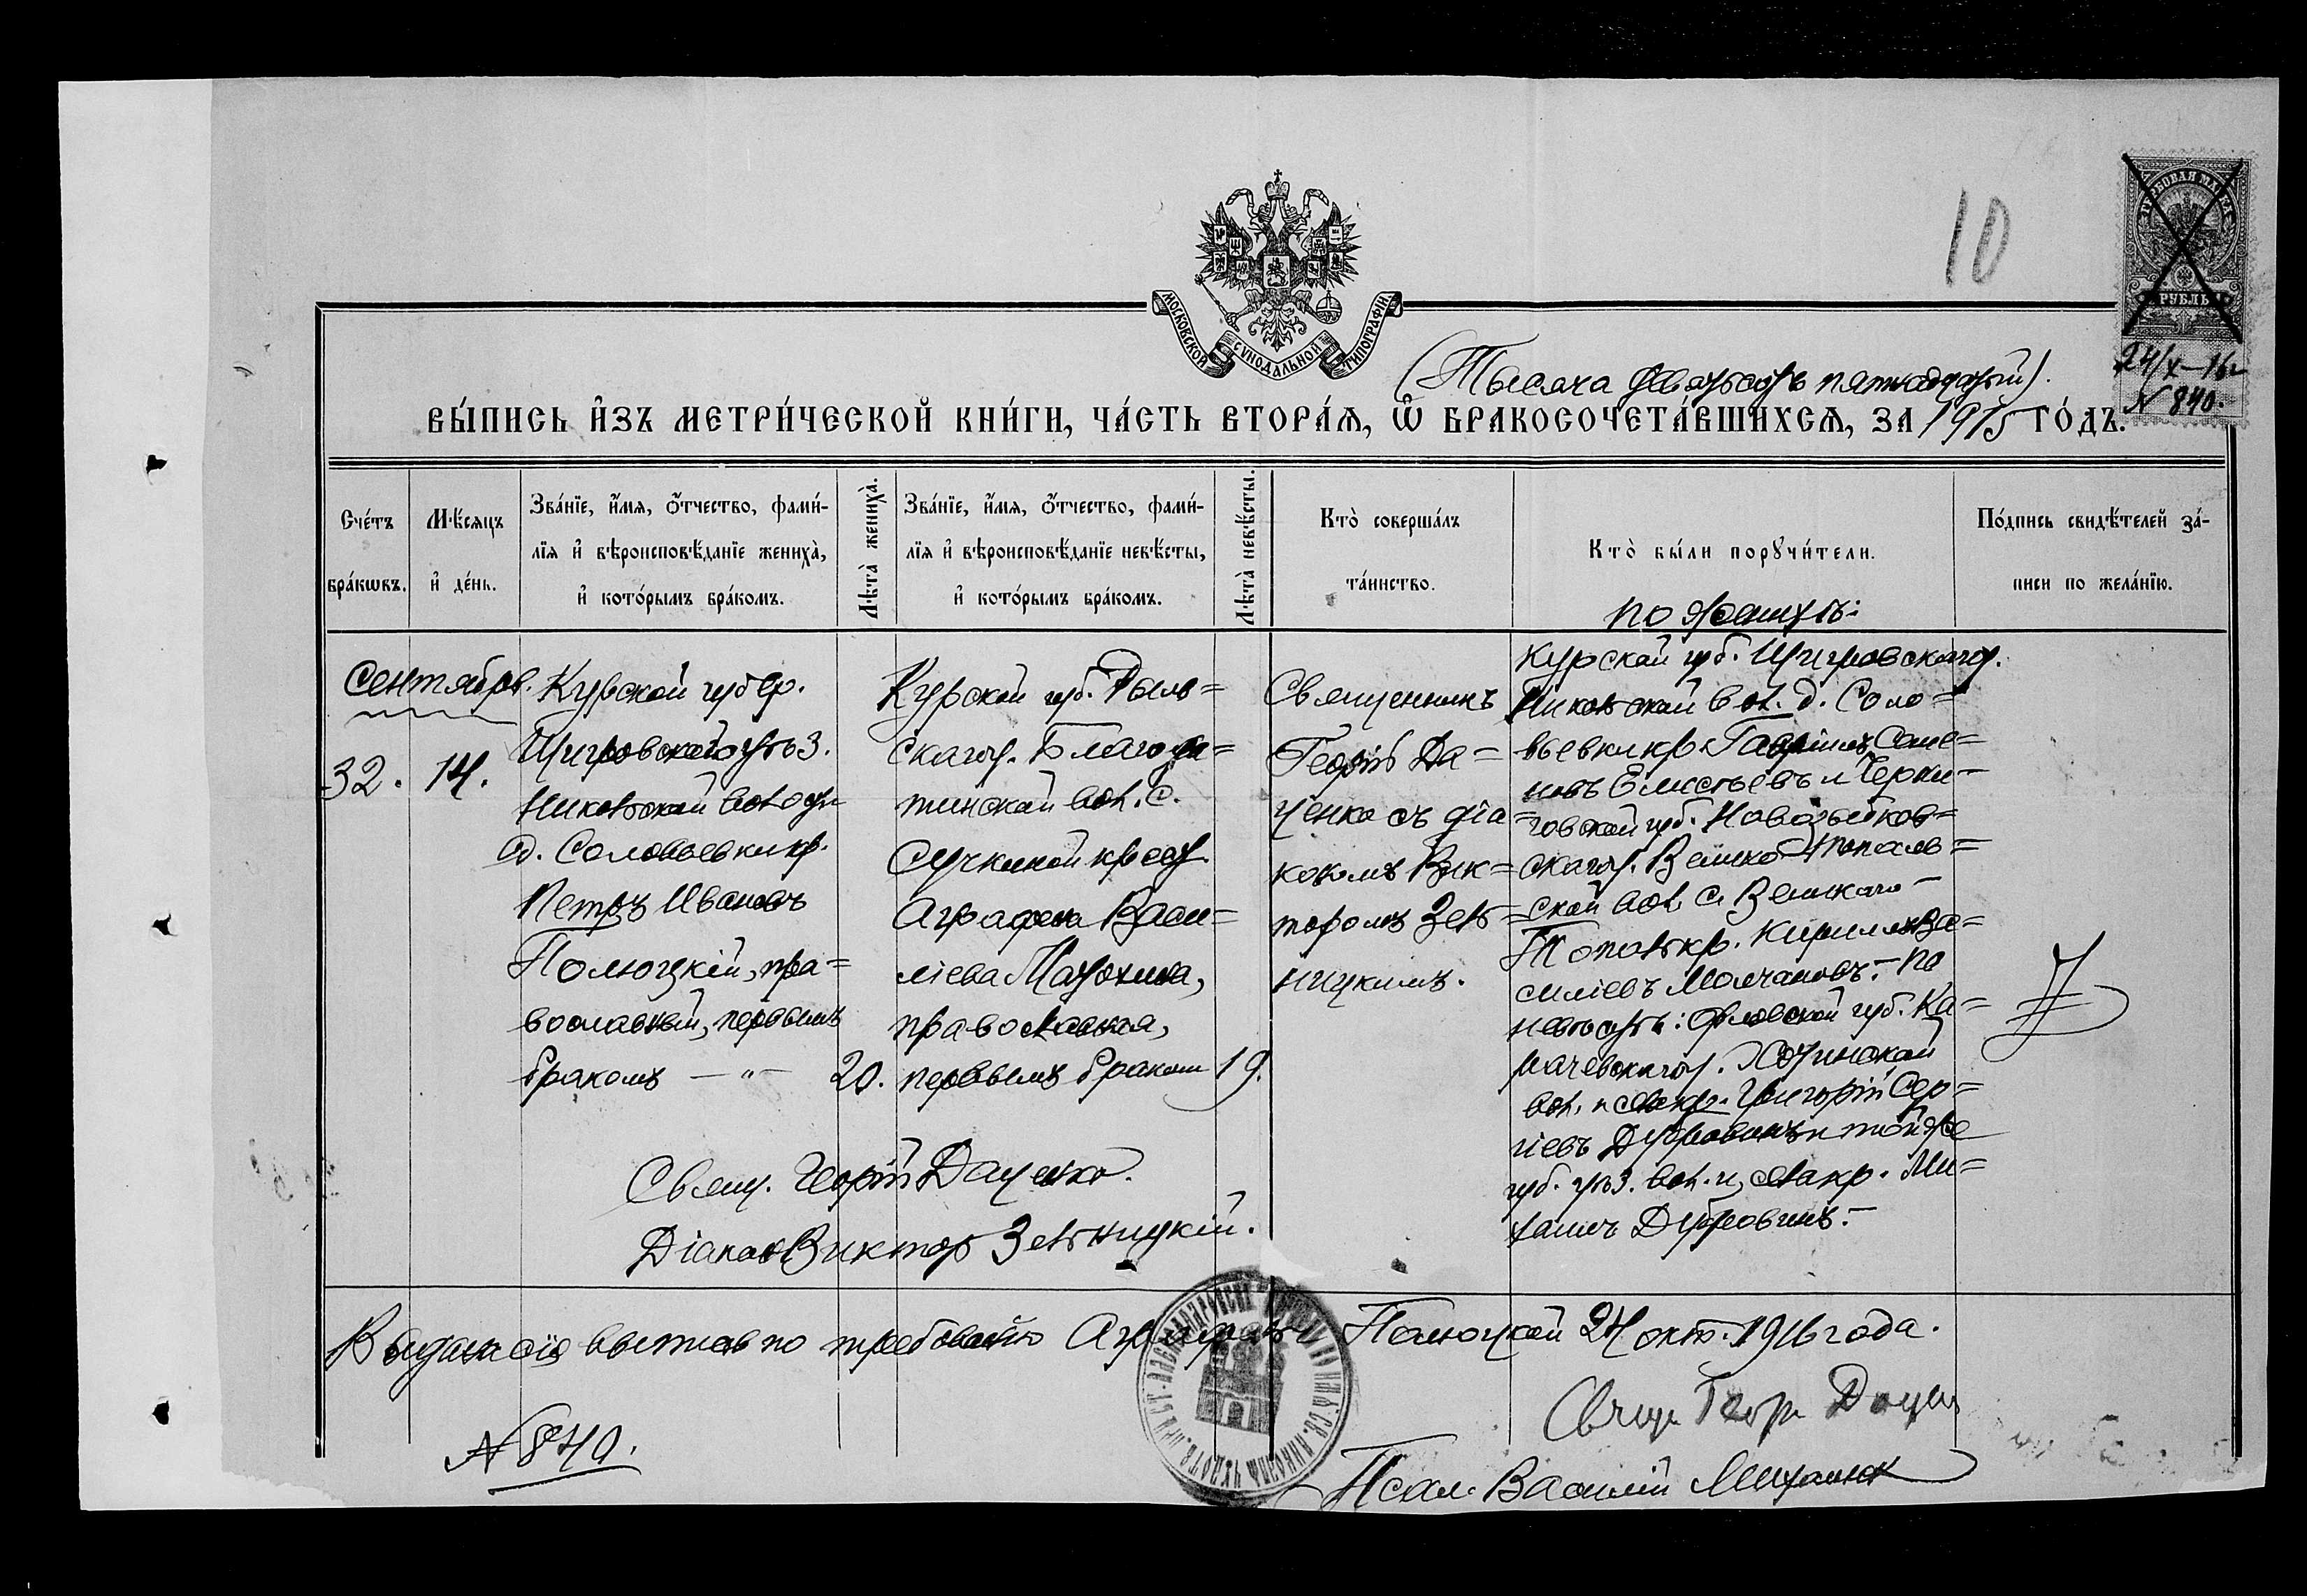 10
ГЕРБОВАЯ МАРКА
РУБЛЬ
24/X–16 г.
N 840.
МОСКОВСКОЙ СѴНОДАЛЬНОЙ ТИПОГРАФІИ.
(Тысяча девятьсотъ пятнадцатый).
ВЫ́ПИСЬ И҆ЗЪ МЕТРИ́ЧЕСКОЙ КНИ́ГИ, ЧА́СТЬ ВТОРА́Я, Ѡ҆ БРАКОСОЧЕТА́ВШИХСЯ, ЗА 1915 ГО́ДЪ.
Сче́тъ
бра́кѡвъ.
Мѣ́сяцъ
и҆ де́нь.
Зва́нїе, и҆́мя, ѻ҆́тчество, фами́-
лїя и҆ вѣроисповѣ́данїе жениха̀,
и҆ кото́рымъ бра́комъ.
Лѣта̀ жениха̀.
Зва́нїе, и҆́мя, ѻ҆́тчество, фами́-
лїя и҆ вѣроисповѣ́данїе невѣ́сты,
и҆ кото́рымъ бра́комъ.
Лѣта̀ невѣ́сты.
Кто̀ соверша́лъ
та́инство.
Кто̀ бы́ли порꙋчи́тели.
По́дпись свидѣ́телей за́-
писи по жела́нїю.
Сентябрь.
32.
14.
Курской губер.
Щигровскаго уѣз.
Никольской волости
д. Соловьевки кр.
Петръ Ивановъ
Полюцкій, пра=
вославный, первымъ
бракомъ — " —
20.
Курской губ. Рыль=
скаго у. Благода=
тинской вол. с.
Сучкиной крест.
Аграфена Васи=
ліева Матохина,
православная,
первымъ бракомъ
19.
Священникъ
Георгій Да=
ценко съ діа=
кономъ Вик=
торомъ Зель=
ницкимъ.
По женихѣ:
Курской губ. Щигровскаго у.
Никольской вол. д. Соло=
вьевки кр. Гавріилъ Семе=
новъ Елисѣевъ и Черни=
говской губ. Новозыбков=
скаго у. Велико-Топаль=
ской вол. с. Великаго
Тополь кр. Кириллъ Ва=
силіевъ Молчановъ. – По
невѣстѣ: Орловской губ. Ка=
рачевскаго у. Хотинской
вол. и села кр. Григорій Сер=
гіевъ Дубровинъ и той же
губ. уѣз. вол. и села кр. Ми=
хаилъ Дубровинъ. –
Свящ. Георгій Даценко.
Діаконъ Викторъ Зельницкій.
Выдана сія выпись по требованію Аграфены Полюцкой 24 окт. 1916 года.
N 840.
Свящ. Георг. Даценко
Псал. Василій